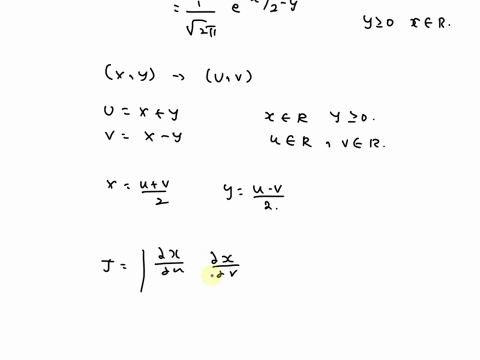 = 1/√2π e /2-y
y≥0 x∈R.
(x,y) → (u,v)
U = x+y x∈R y≥0.
V = x-y u∈R, v∈R.
x = u+v/2 y = u-v/2.
J = | ∂x/∂u ∂x/∂v